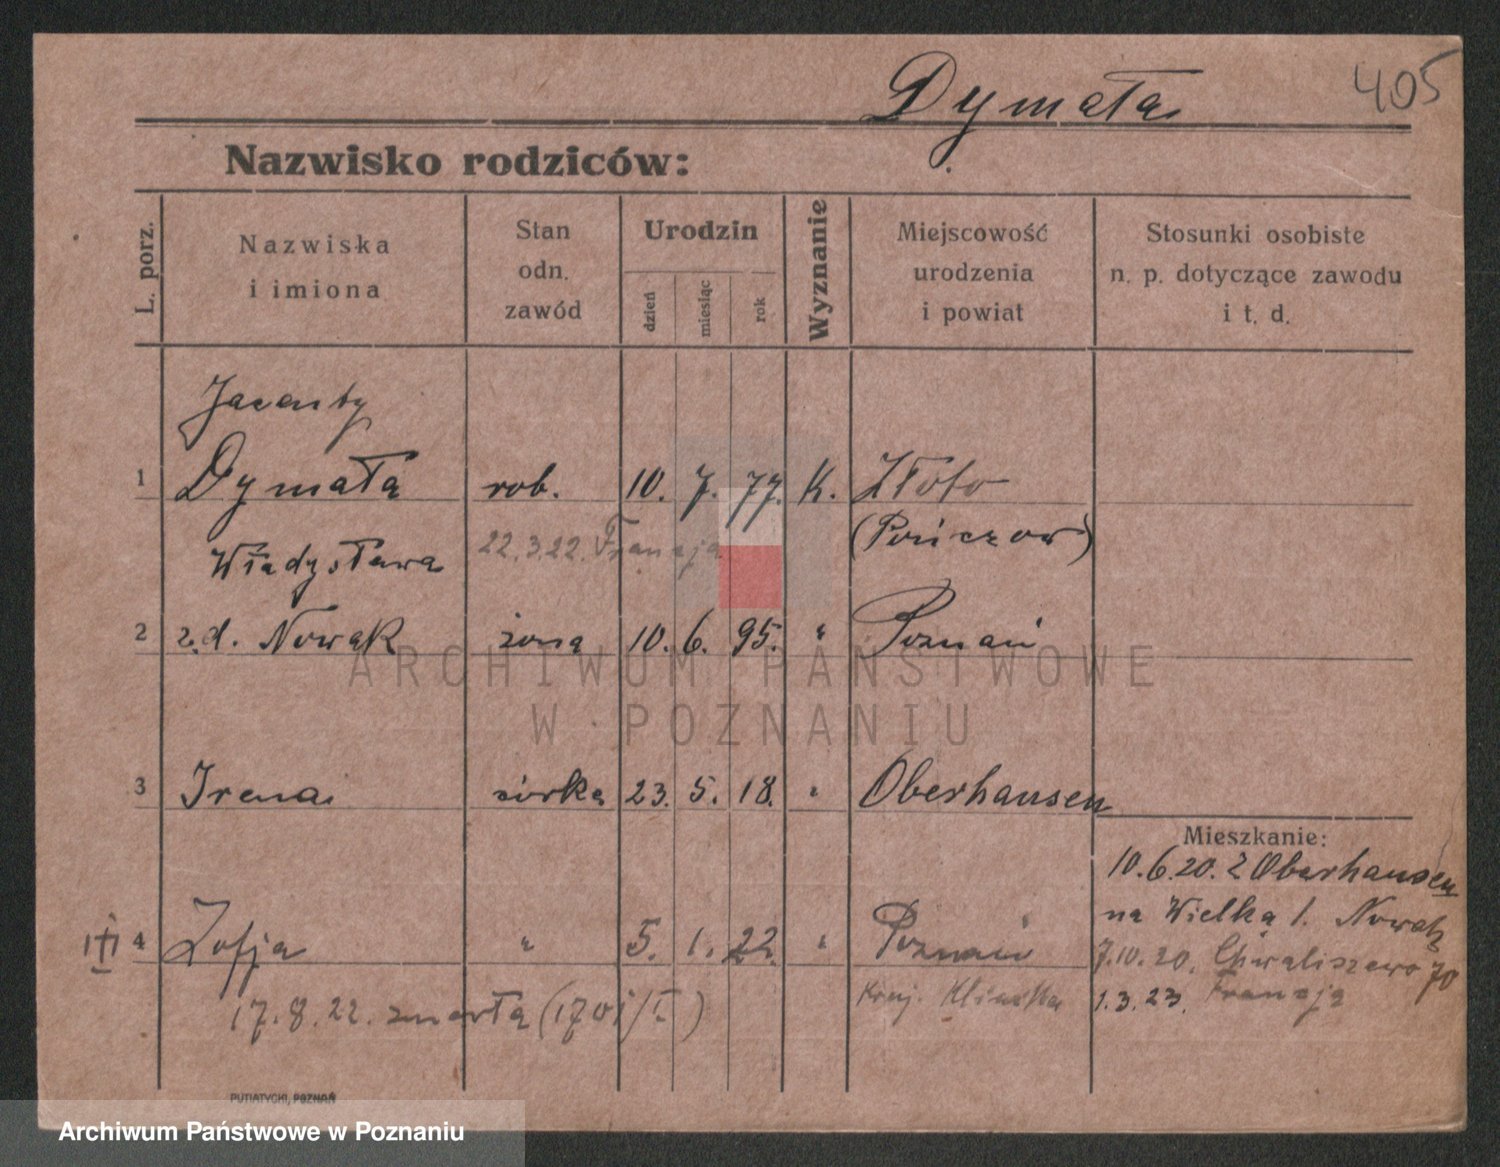 Dymała
405
Nazwisko rodziców:
L. porz.
Nazwiska
i imiona
Stan
odn.
zawód
Urodzin
dzień
miesiąc
rok
Wyznanie
Miejscowość
urodzenia
i powiat
Stosunki osobiste
n. p. dotyczące zawodu
i t. d.
Jacenty
1 Dymała rob. 10. 7. 77. K. Złoto
(Pińczow)
22.3.22. Francja
Władysława
2 z.d. Nowak żona 10. 6. 95. " Poznań
3 Irena córka 23. 5. 18. " Oberhausen
Mieszkanie:
10.6.20. z Oberhausen
na Wielka 1. Nowak
7.10.20. Chwaliszewo 70
1.3.23. Francja
4 Zofja " 5. 1. 22. " Poznań
17.8.22. zmarła (1701/I)
PUTIATYCKI, POZNAŃ
ARCHIWUM PAŃSTWOWE
W POZNANIU
Archiwum Państwowe w Poznaniu